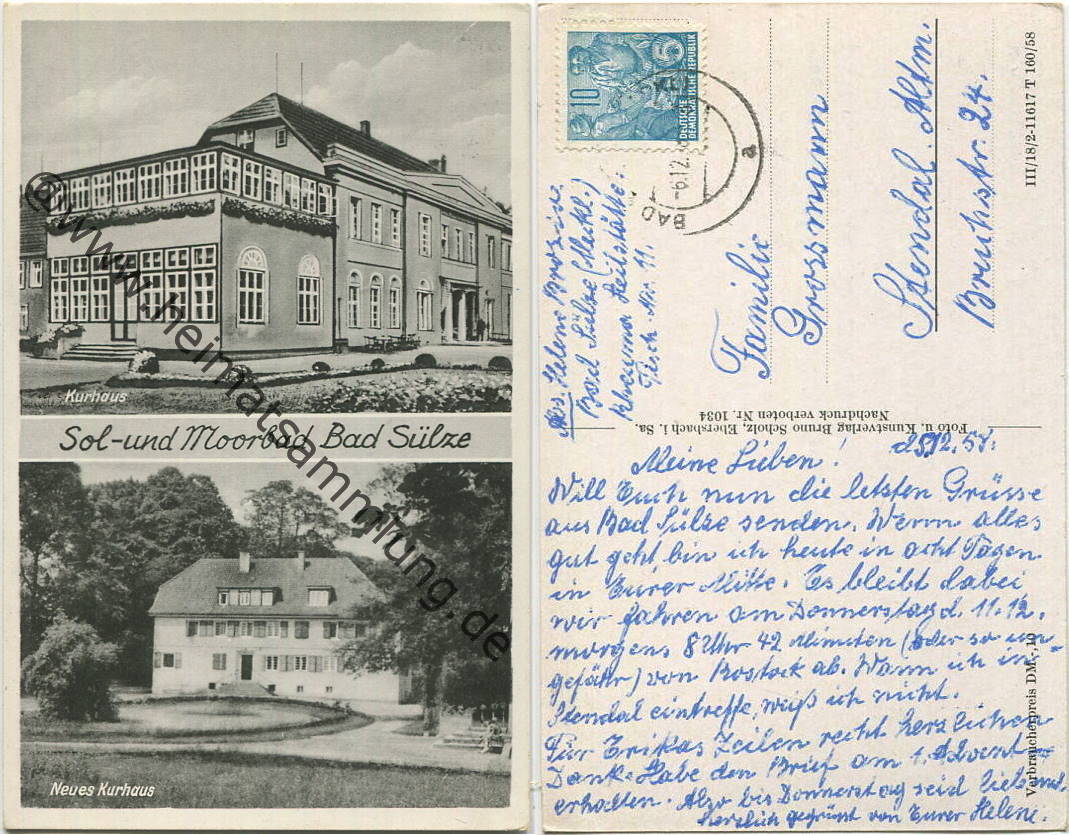 Kurhaus
Sol-und Moorbad Bad Sülze
Neues Kurhaus
@www.heimatsammlung.de
10
5
DEUTSCHE
DEMOKRATISCHE REPUBLIK
BAD
-6.12.
a
Abs. Helene
Bad Sülze (Meckl.)
Rheuma Heilstätte.
Tisch Nr. 11.
Familie
Grossmann
Stendal Altm.
Bruchstr. 24.
III/18/2-11617 T 160/58
Foto u. Kunstverlag Bruno Scholz, Ebersbach i. Sa.
Nachdruck verboten Nr. 1034
Verbraucherpreis DM -,10
Meine Lieben! 12.58.
Will Euch nun die letzten Grüsse
aus Bad Sülze senden. Wenn alles
gut geht, bin ich heute in acht Tagen
in Eurer Mitte. Es bleibt dabei
wir fahren am Donnerstag d. 11.12.
morgens 8 Uhr 42 Minuten (oder so un-
gefähr) von Rostock ab. Wann ich in
Stendal eintreffe, weiß ich nicht.
Für Erikas Zeilen recht herzlichen
Dank. Habe den Brief am 1. Advent
erhalten. Also bis Donnerstag seid lieb und
herzlich gegrüßt von Eurer Helene.